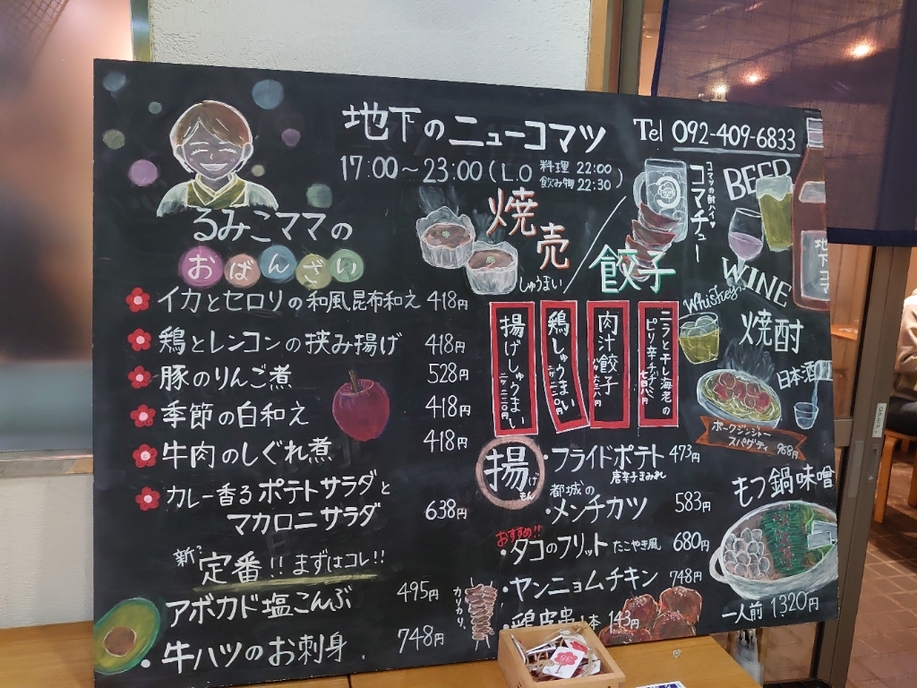 地下のニューコマツ
Tel 092-409-6833
17:00～23:00(L.O 料理 22:00
飲み物 22:30)
るみこママの
おばんざい
イカとセロリの和風昆布和え 418円
鶏とレンコンの挟み揚げ 418円
豚のりんご煮 528円
季節の白和え 418円
牛肉のしぐれ煮 418円
カレー香るポテトサラダと
マカロニサラダ 638円
新・定番!! まずはコレ!!
アボカド塩こんぶ 495円
・牛ハツのお刺身 748円
焼売
しゅうまい
餃子
揚げしゅうまい
鶏しゅうまい
肉汁餃子
ニラと干し海老の
ピリ辛チヂミ
コマツの酎ハイ
コマチュー
BEER
WINE
Whiskey
焼酎
日本酒
ポークジンジャー
スパゲティ 968円
揚げもん
・フライドポテト 473円
唐辛子まみれ
都城の
・メンチカツ 583円
おすすめ!!
・タコのフリット たこやき風 680円
・ヤンニョムチキン 748円
カリカリ
・鶏皮串 1本 143円
もつ鍋 味噌
一人前 1320円